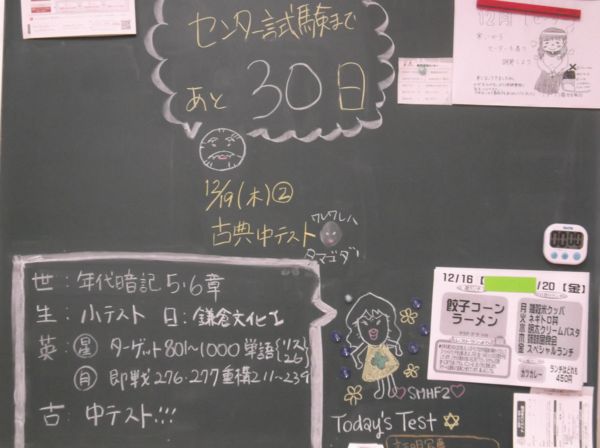 センター試験まで
あと 30日
12/19(木)②
古典中テスト
ワレワレハ
タマゴダ!
世:年代暗記 5・6章
生:小テスト 日:鎌倉文化
英:星 ターゲット 801~1000 単語
月 即戦 276・277 重構 211~239
古:中テスト!!!
SMHF2
Today's Test
12/16【
/20【金】
餃子コーン
ラーメン
月 雑穀米クッパ
火 ネギトロ丼
水 明太クリームパスタ
金 スペシャルランチ
カツカレー
ランチはどれも
450円